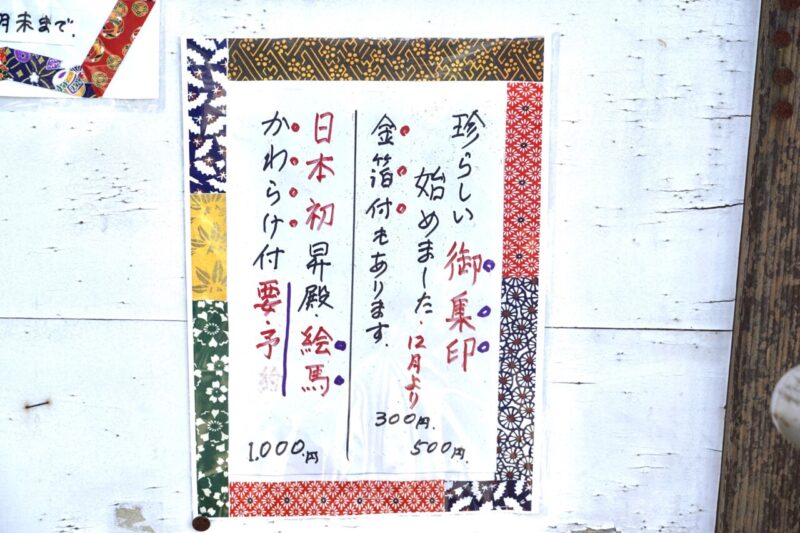 月末まで.
珍らしい 御集印
始めました. 12月より
500円.
金箔付もあります.
300円.
日本初昇殿.絵馬
かわらけ付要・予約
1.000.円